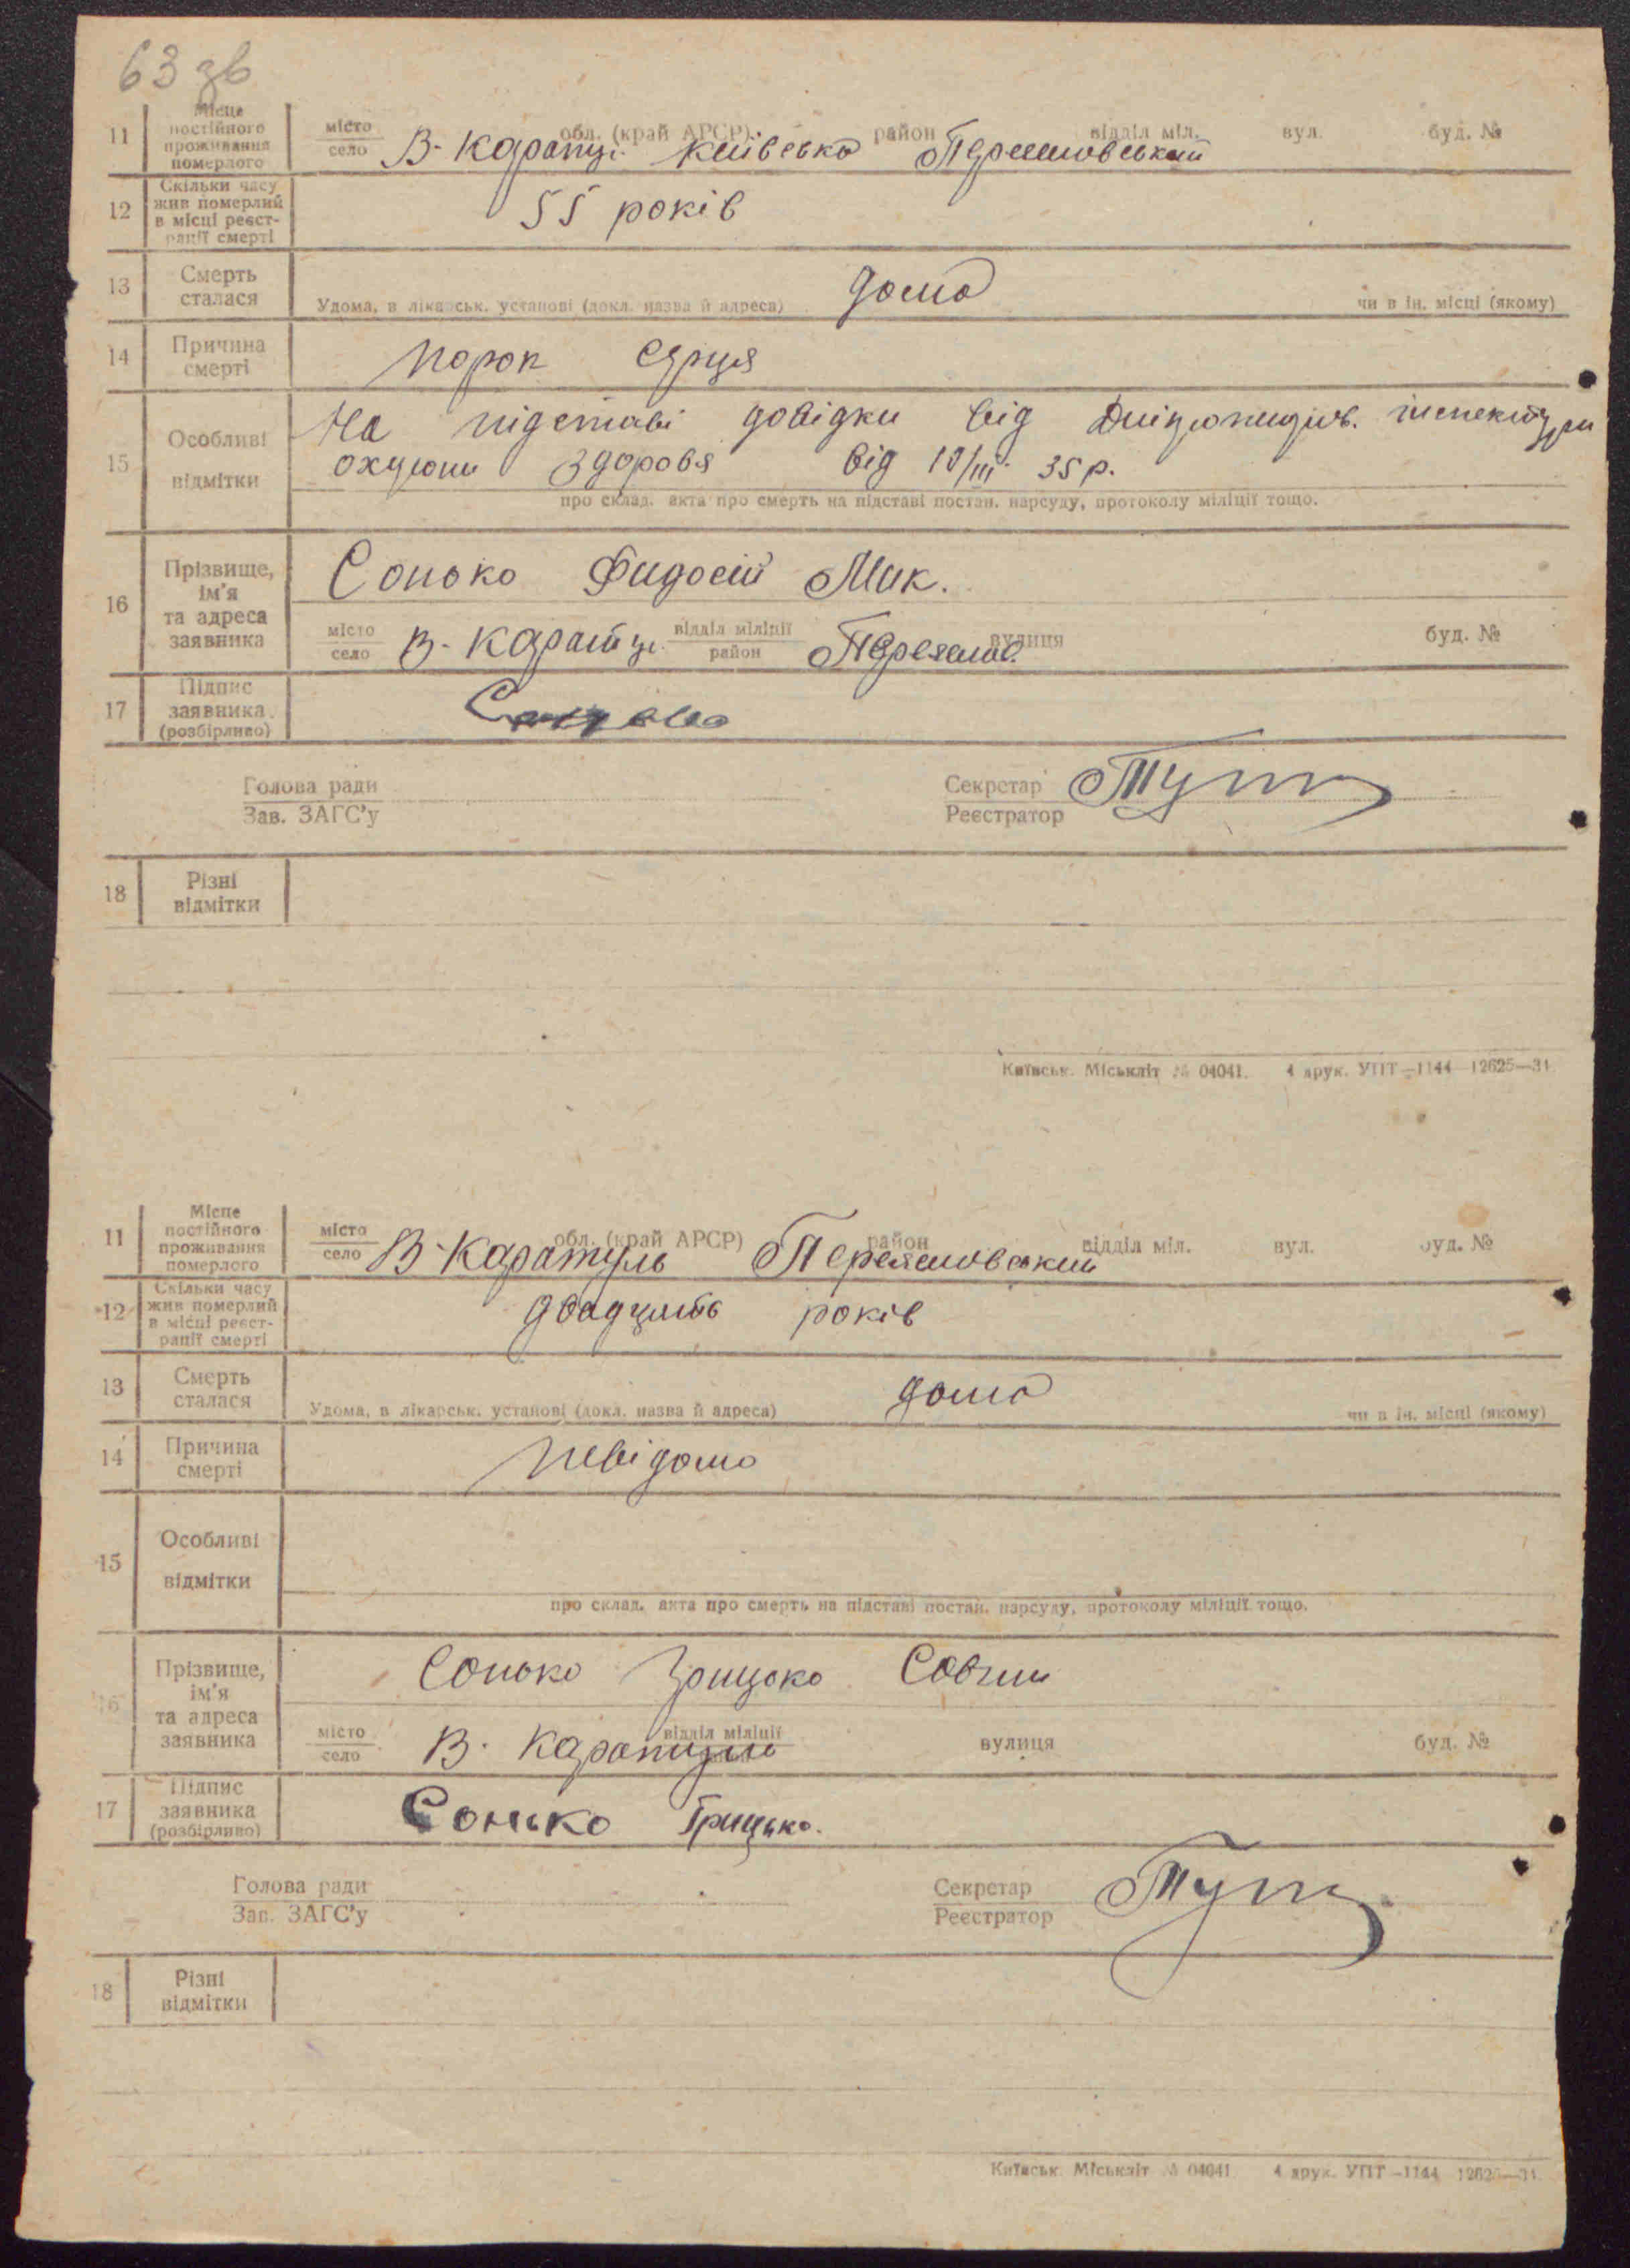 63 зв
11 Місце постійного проживання померлого місто село В-Карату. обл. (край АРСР) Київська район Переяславський відділ міл. вул. буд. №
12 Скільки часу жив померлий в місці реєстрації смерті 55 років
13 Смерть сталася Удома, в лікарськ. установі (докл. назва й адреса) дома чи в ін. місці (якому)
14 Причина смерті порок серця
15 Особливі відмітки На підставі довідки від інспектури
охорони здоровя від 10/III 35 р.
про склад. акта про смерть на підставі постан. нарсуду, протоколу міліції тощо.
16 Прізвище, ім'я та адреса заявника Сонько Фидосій Мак.
місто село В-Карату. відділ міліції район Переяслав. вулиця буд. №
17 Підпис заявника (розбірливо)
Голова ради Секретар
Зав. ЗАГС'у Реєстратор
18 Різні відмітки
Київськ. Міськліт № 04041. 4 друк. УПТ—1144—12625—31
11 Місце постійного проживання померлого місто село В-Каратуль обл. (край АРСР) Переяславський район відділ міл. вул. буд. №
12 Скільки часу жив померлий в місці реєстрації смерті двадцять років
13 Смерть сталася Удома, в лікарськ. установі (докл. назва й адреса) дома чи в ін. місці (якому)
14 Причина смерті невідомо
15 Особливі відмітки
про склад. акта про смерть на підставі постан. нарсуду, протоколу міліції тощо.
16 Прізвище, ім'я та адреса заявника Сонько Грицько Савич
місто село В. Каратуль відділ міліції вулиця буд. №
17 Підпис заявника (розбірливо) Сонько Грицько.
Голова ради Секретар
Зав. ЗАГС'у Реєстратор
18 Різні відмітки
Київськ. Міськліт № 04041 4 друк. УПТ—1144